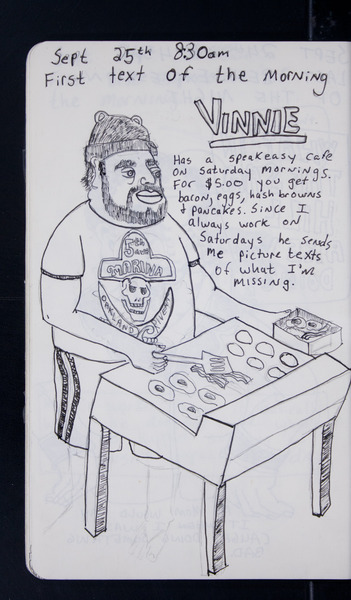 Sept 25th 8:30am
First text of the Morning
VINNIE
Has a speakeasy cafe
on Saturday mornings.
For $5.00 you get
bacon, eggs, hash browns
+ pancakes. Since I
always work on
Saturdays he sends
me picture texts
of what I'm
missing.
5th ave
MARINA
OAKLAND